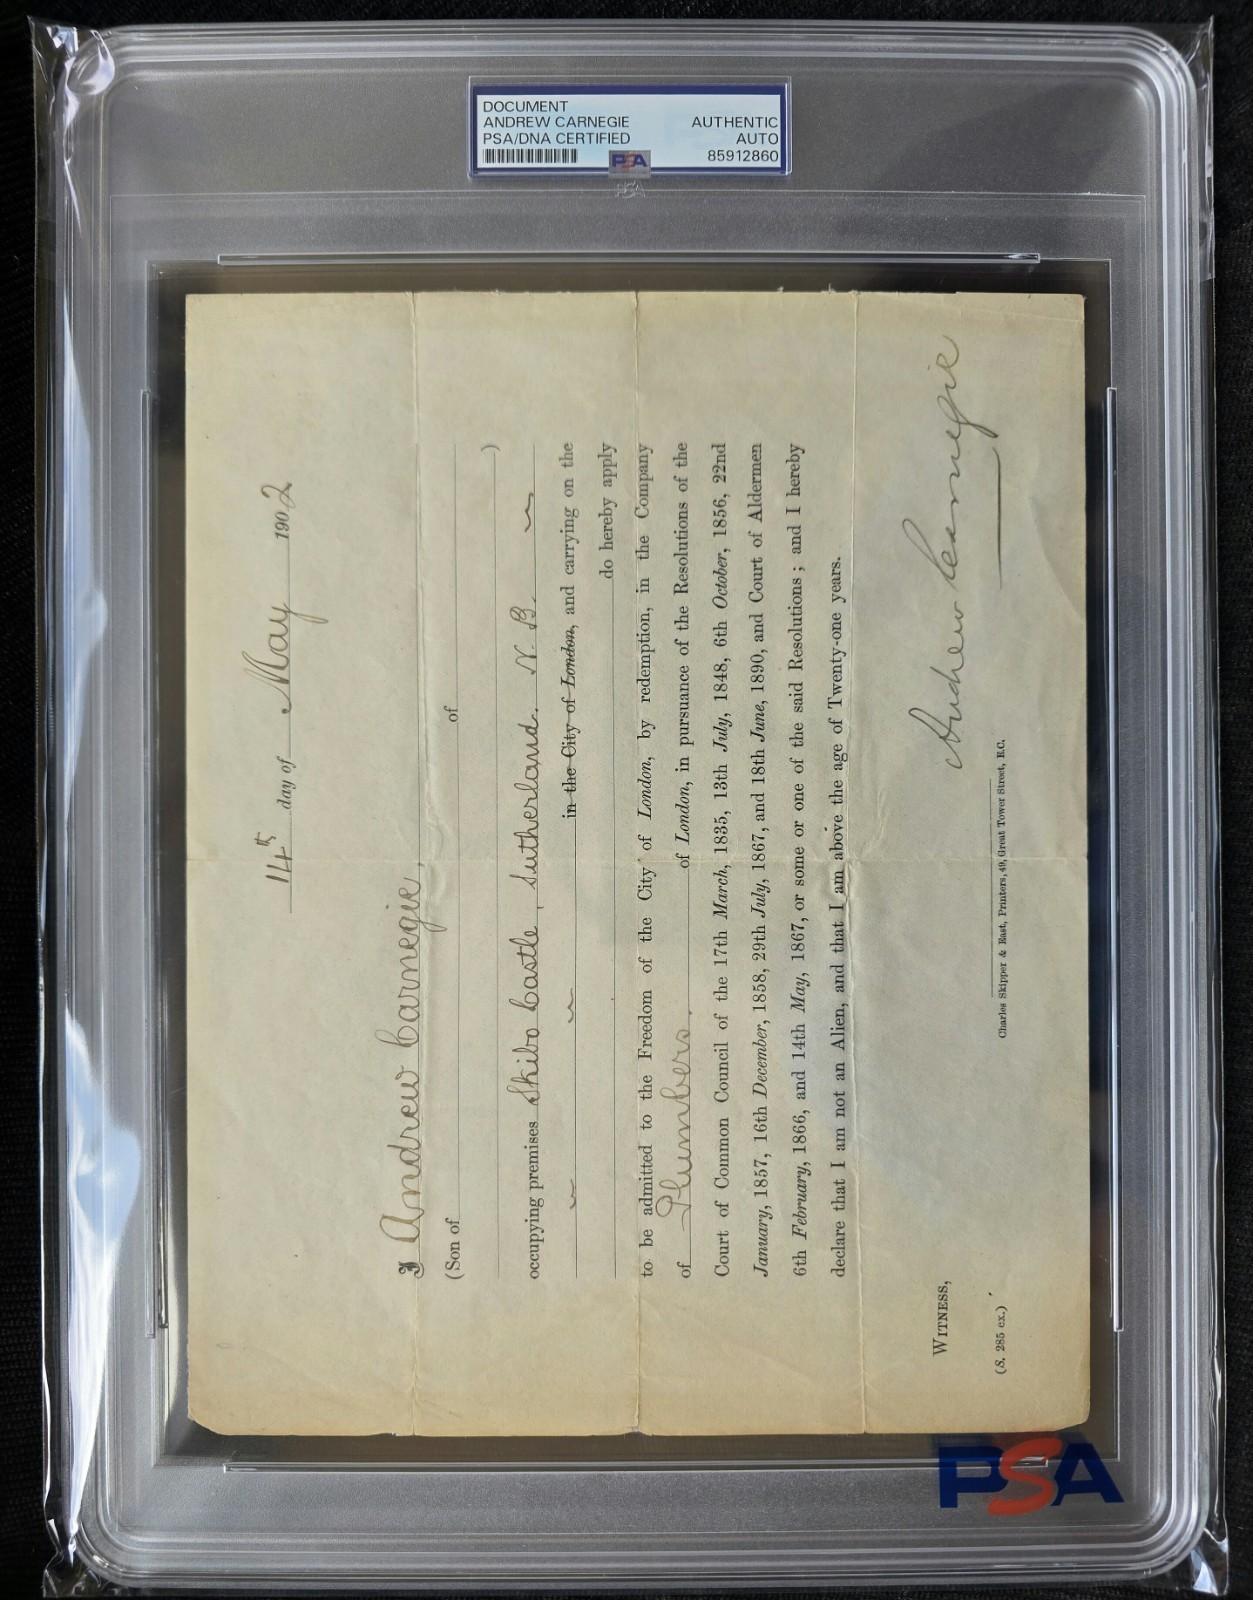 DOCUMENT
ANDREW CARNEGIE AUTHENTIC
PSA/DNA CERTIFIED AUTO
PSA 85912860
14th day of May 1902
I Andrew Carnegie,
(Son of of
)
occupying premises Skibo Castle, Sutherland. N. B.
in the City of London, and carrying on the
do hereby apply
to be admitted to the Freedom of the City of London, by redemption, in the Company
of Plumbers. of London, in pursuance of the Resolutions of the
Court of Common Council of the 17th March, 1835, 13th July, 1848, 6th October, 1856, 22nd
January, 1857, 16th December, 1858, 29th July, 1867, and 18th June, 1890, and Court of Aldermen
6th February, 1866, and 14th May, 1867, or some or one of the said Resolutions; and I hereby
declare that I am not an Alien, and that I am above the age of Twenty-one years.
Andrew Carnegie
WITNESS,
Charles Skipper & East, Printers, 49, Great Tower Street, E.C.
(S. 285 ex.)
PSA